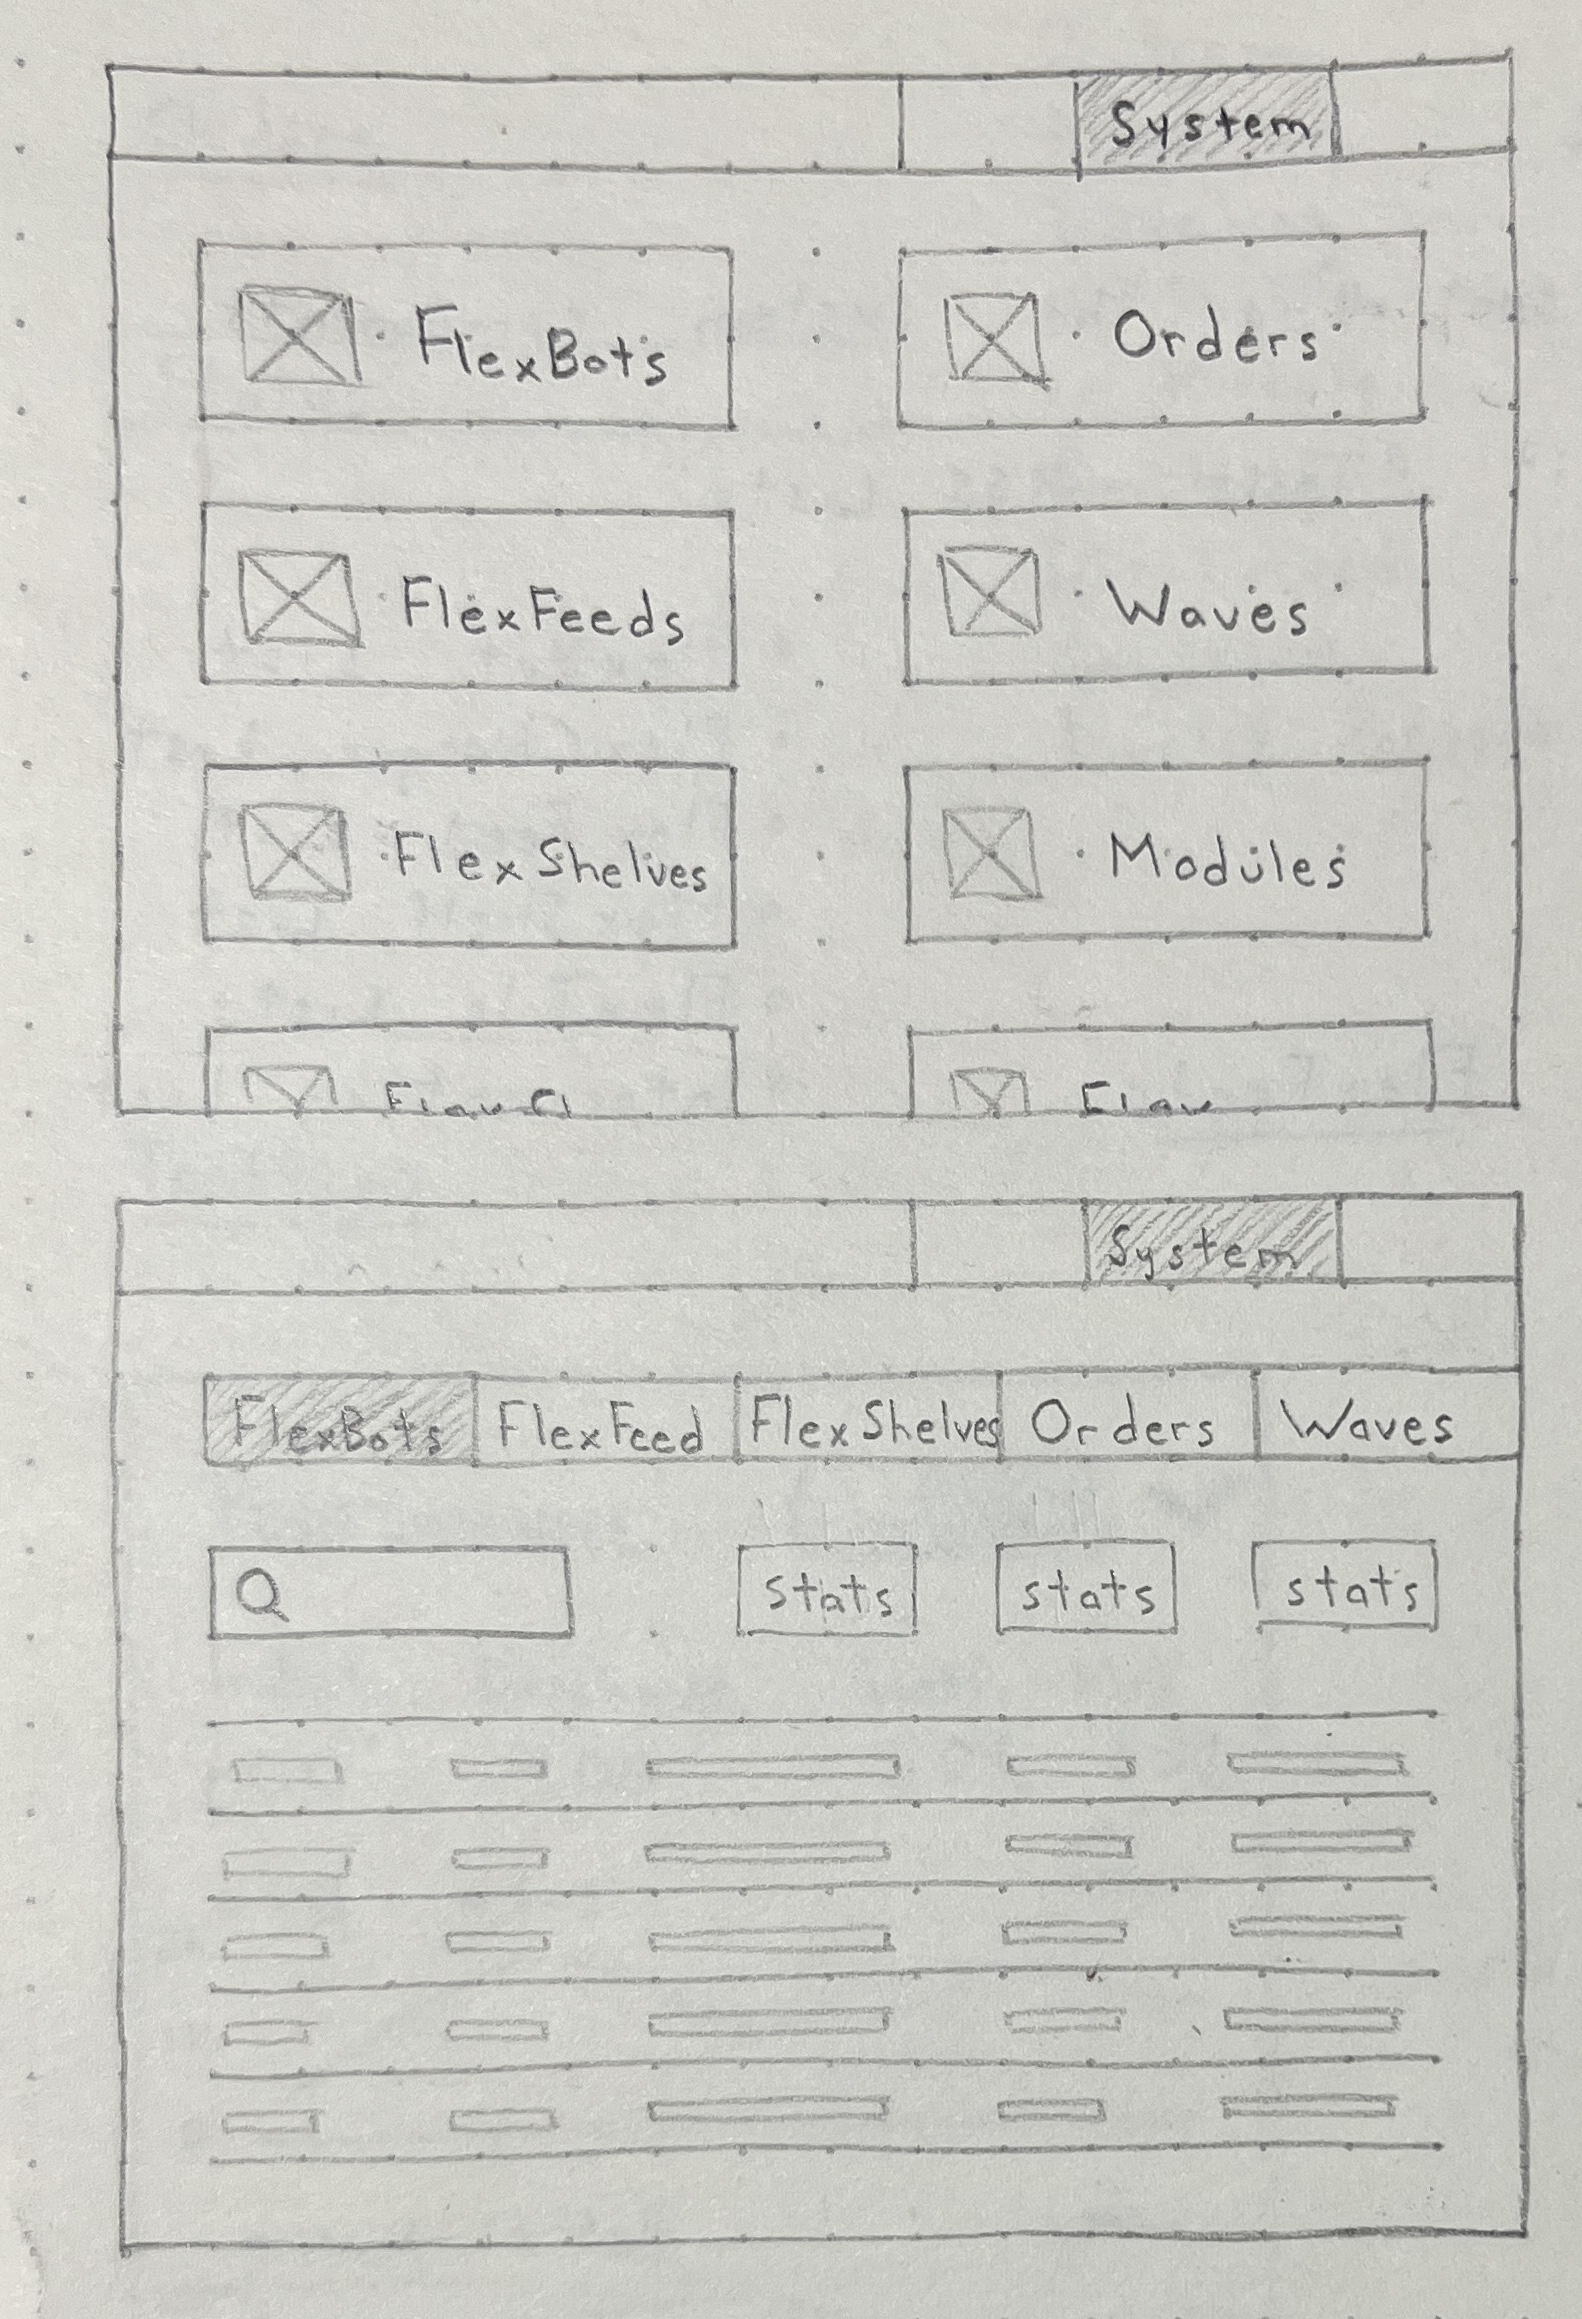 System
FlexBots
Orders
FlexFeeds
Waves
FlexShelves
Modules
System
FlexBots FlexFeed FlexShelves Orders Waves
stats stats stats